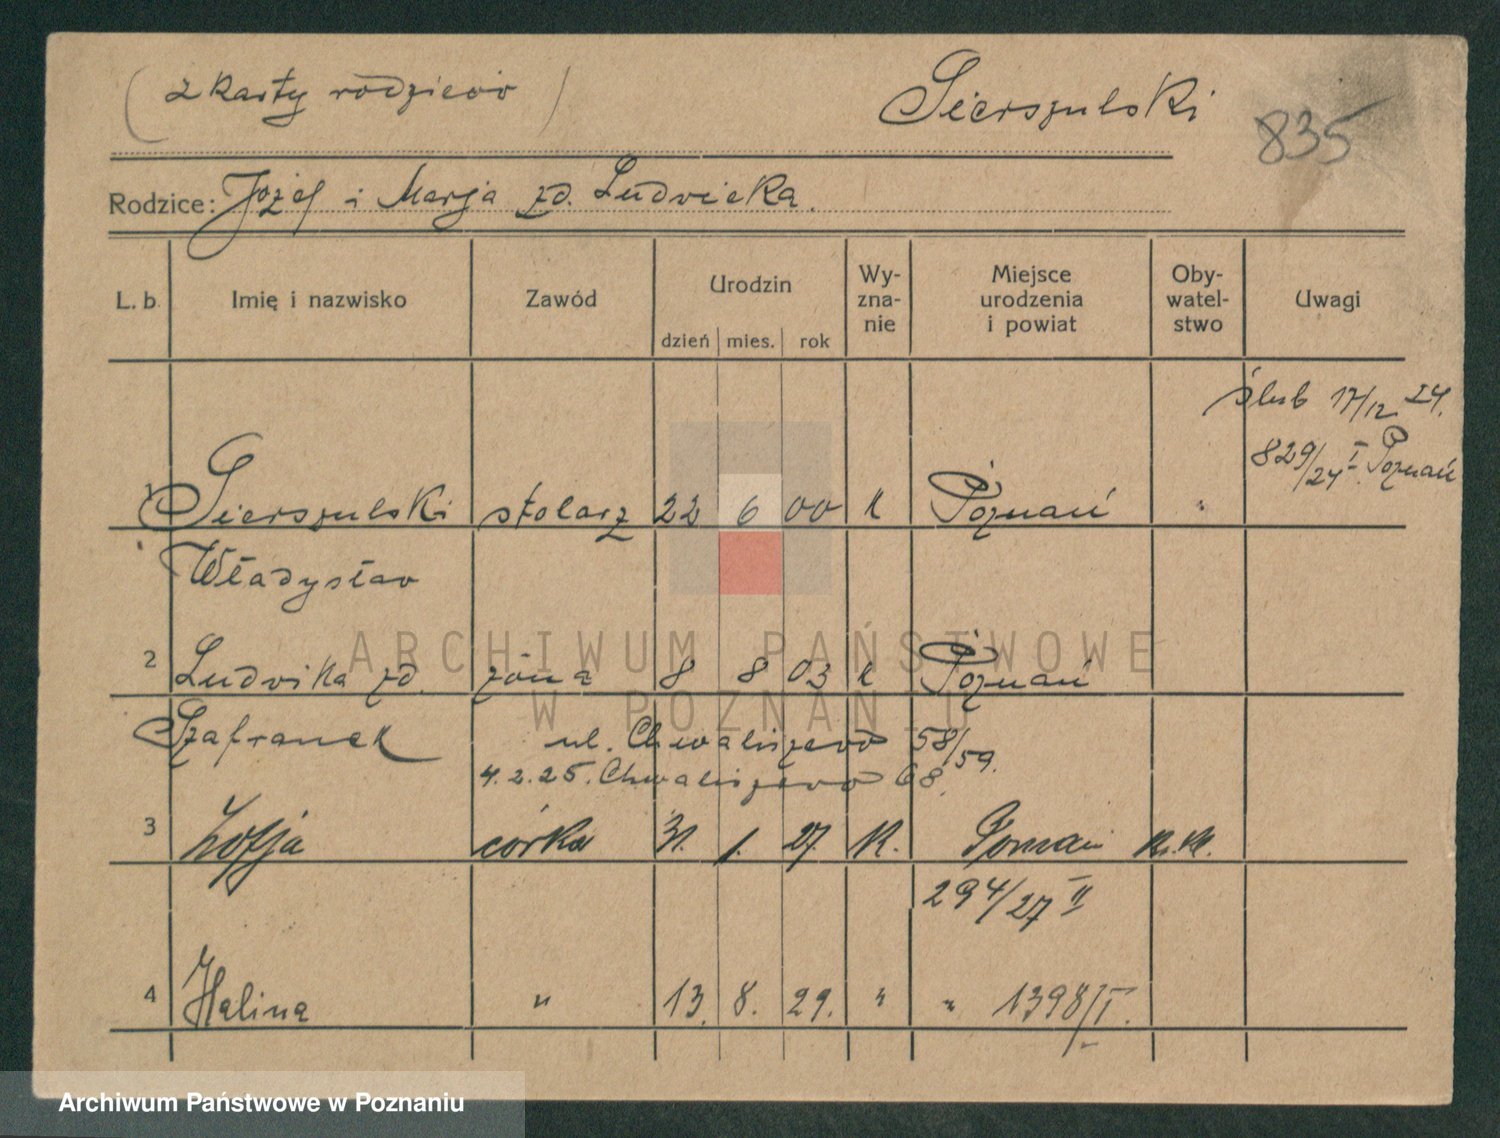 (z karty rodziców)
Sierszulski
835
Rodzice: Józef i Marja zd. Ludwicka.
L. b. Imię i nazwisko Zawód Urodzin Wy-zna-nie Miejsce urodzenia i powiat Oby-watel-stwo Uwagi
dzień mies. rok
ślub 17/12 24.
829/24 I. Poznań
1 Sierszulski stolarz 22 6 00 k Poznań "
Władysław
2 Ludwika zd. żona 8 8 03 k Poznań
Szafranek ul. Chwaliszewo 58/59.
4.2.25. Chwaliszewo 68.
3 Zofja córka 31. 1. 27. K. Poznań
294/27 II
4 Halina " 13. 8. 29. " " 1398/I.
ARCHIWUM PAŃSTWOWE
W POZNANIU
Archiwum Państwowe w Poznaniu